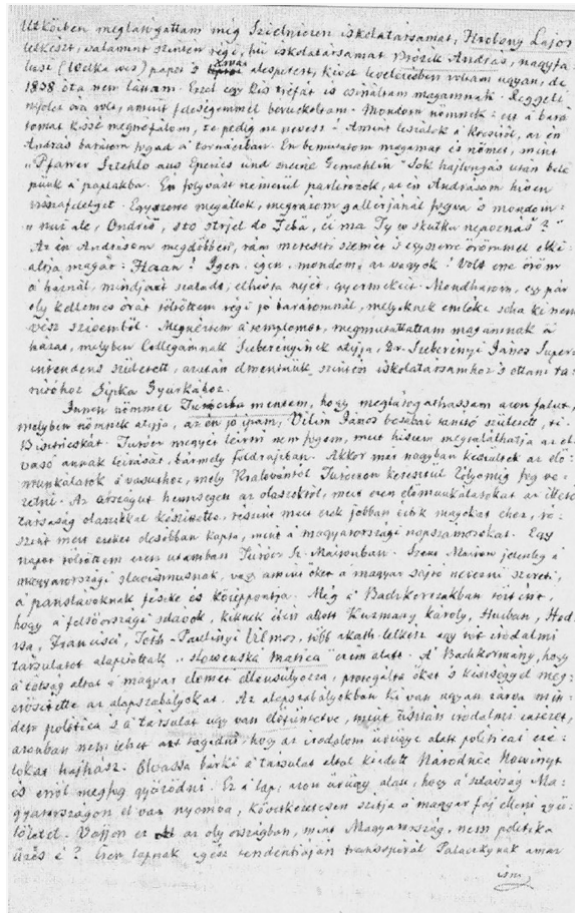 Utközben meglátogattam még Szielnicen iskolatársamat, Hrobony Lajos
lelkészt, valamint szintén régi, hű iskolatársamat Bröcik András, nagyfa-
lusi (Welka wes) papot 's alesperest, kivel leveleztem voltam ugyan, de
1838 óta nem láttam. Ezzel egy kis tréfát is csináltam magamnak. Reggeli
nyolcz óra volt, amint feleségemmel berukoltam. Mondom nőmnek: ezt a bará-
tomat kissé megtréfálom, te pedig ne nevess! Amint leszálok a kocsiról, az én
András barátom fogad a tornáczban. Én bemutatom magamat és nőmet, mint
"Pfarrer Szehlo aus Eperies und meine Gemahlin" Sok hajlongás után belé-
pünk a paplakba. Én folyvást németül parlirozok, az én Andrásom híven
visszafelelget. Egyszerre megállok, megrázom gallérjánál fogva 's mondom:
"nuž ale, Ondriš, sto strjel do Teba, či ma Ty w skutku nepoznáš?"
Az én Andrásom megdöbben, rám mereszti szemét 's egyszerre örömmel elki-
áltja magát: Haan! Igen, igen, mondom, az vagyok! Volt erre öröm
a háznál, mindjárt szalad, elhívta nejét, gyermekeit. Mondhatom, egy pár
oly kellemes órát töltöttem régi jó barátomnál, melyeknek emléke soha ki nem
vész szívemből. Megnéztem a templomot, megmutattattam magamnak a
házat, melyben Collegámnak Szeberényinek atyja, Dr. Szeberényi János Super-
intendens született, azután elmentünk szintén iskolatársamhoz 's ottani ta-
nítóhoz Sipka Gyurkához.
Innen nőmmel Turóczba mentem, hogy meglátogathassam azon falut,
melyben nőmnek atyja, az én jó ipam, Vilim János békésbai tanító született, t.i.
Bisztricskát. Turócz megyét leírni nem fogom, mert hiszem megtalálhatja az ol-
vasó annak leírását, bármely földrajzban. Akkor már nagyban készültek az elő-
munkálatok a vasúthoz, mely Kralovántól Turóczon keresztül Zólyomig fog ve-
zetni. Az országút hemzsegett az olaszoktól, mert ezen előmunkálatokat az illető
társaság olaszokkal készíttette, részint mert ezek jobban értik magokat ehez, ré-
szint mert ezeket olcsóbban kapta, mint a magyarországi napszámosokat. Egy
napot töltöttem ezen utamban Turócz Sz. Mártonban. Szent Márton jelenleg a
magyarországi slavismusnak, vagy amint őket a magyar sajtó nevezni szereti,
a pánslávoknak fészke és középpontja. Még a Bachkorszakban történt,
hogy a felsőországi slávok, kiknek élén állott Kuzmány Károly, Hurban, Hod-
ža, Francisci, Toth-Paulinyi Vilmos, több akath. lelkész egy tót irodalmi
társulatot alapítottak "slowenská Matica" czím alatt. A Bachkormány, hogy
a tótság által a magyar elemet ellensúlyozza, protegálta őket 's készséggel meg-
erősítette az alapszabályokat. Az alapszabályokban ki van ugyan zárva min-
den politica 's a társulat úgy van előtüntetve, mint tisztán irodalmi intézet,
azonban nem lehet azt tagadni, hogy az irodalom ürügye alatt politicai cze-
lokat hajhász. Olvassa bárki a társulat által kiadott Národnie Nowinyt
és erről meg fog győződni. Ez a lap, azon ürügy alatt, hogy a slávság Ma-
gyarországon el van nyomva, következetesen szítja a magyar faj elleni gyű-
löletet. Vajjon ez az oly országban, mint Magyarország, nem politika
űzés é? Ezen lapnak egész tendentiáján transpirál Palackynak amaz